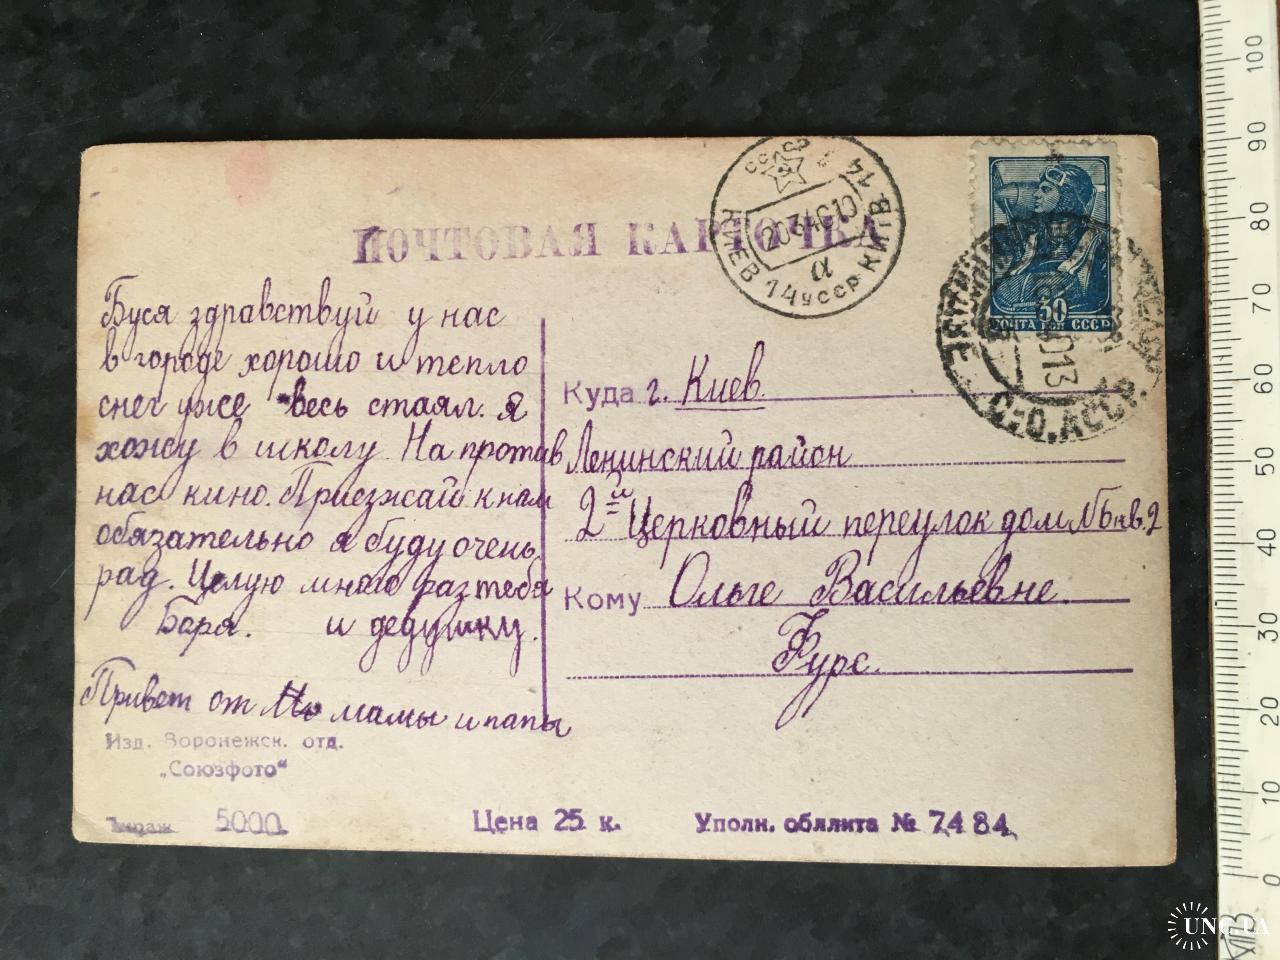 ПОЧТОВАЯ КАРТОЧКА
СССР
14
КИЕВ 14 УССР КИЇВ
20340.10
а
30
ПОЧТА СССР
С-О.АССР.
Буся здравствуй у нас
в городе хорошо и тепло
снег уже весь стаял. я
хожу в школу. На против
нас кино. Приезжай к нам
обязательно я буду очень
рад. Целую много раз тебя
Боря. и дедушку.
Привет от мамы и папы
Куда г. Киев
Ленинский район
2й Церковный переулок дом №6 кв.2
Кому Ольге Васильевне
Фурс.
Изд. Воронежск. отд.
„Союзфото"
Тираж 5000
Цена 25 к.
Уполн. обллита № 7484
0
10
20
30
40
50
60
70
80
90
100
UNC.UA